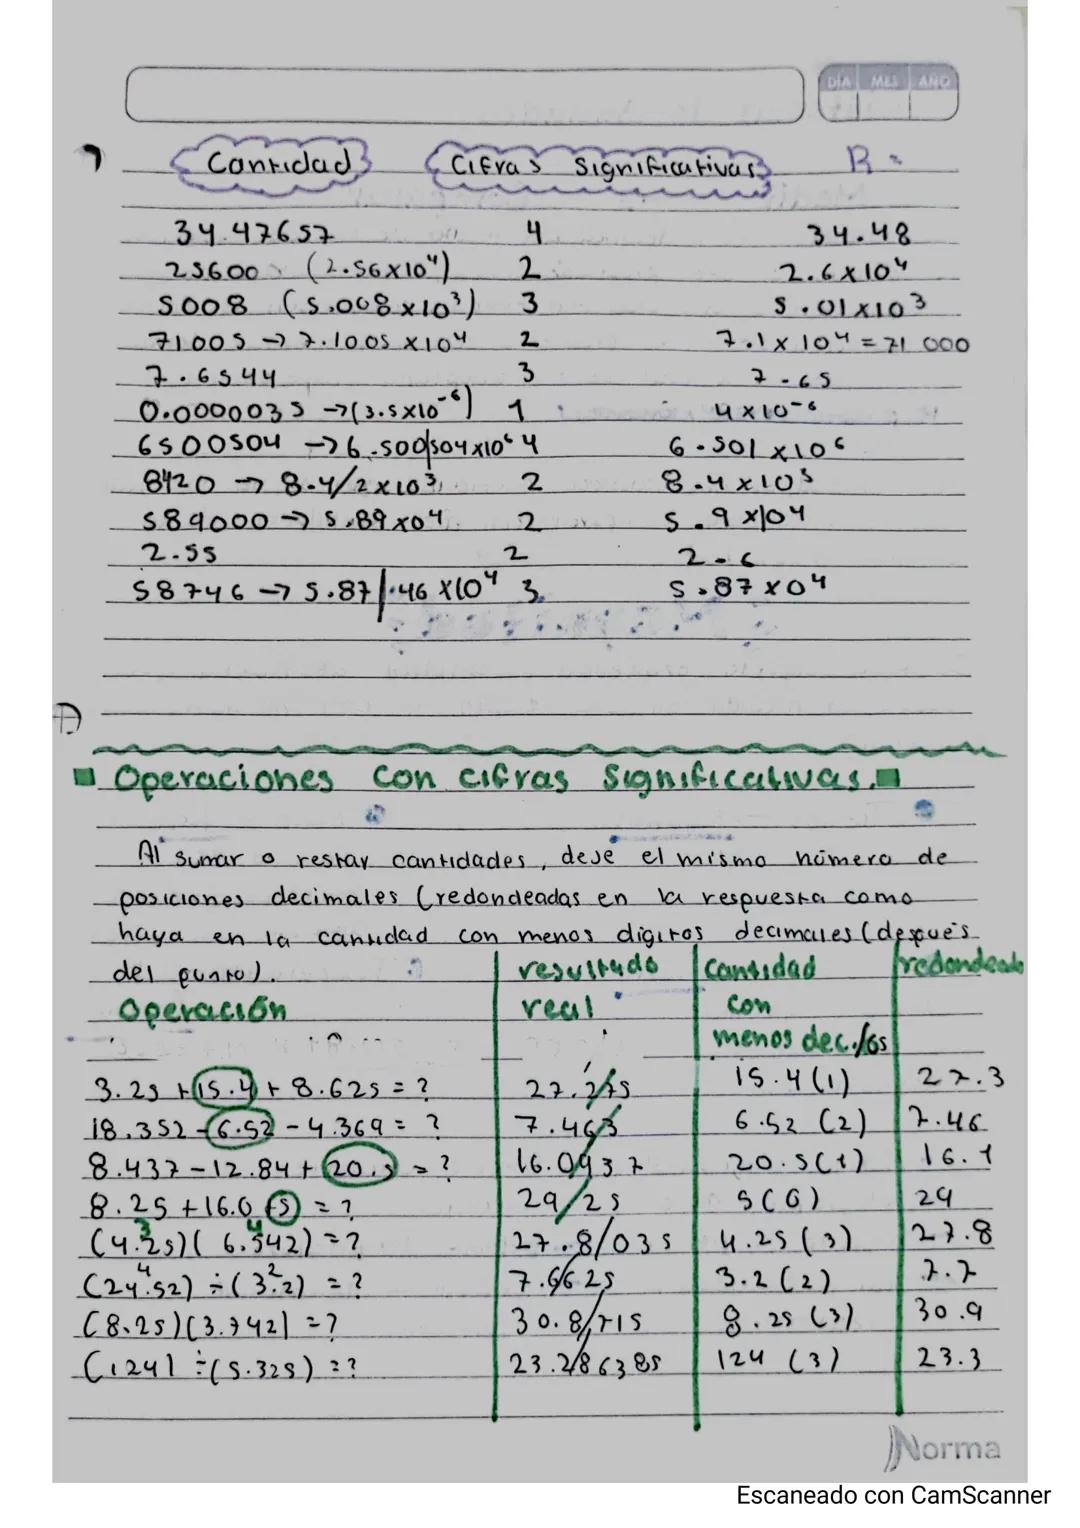 DÍA MES AÑO
Cantidad Cifras Significativas R =
34.47657 4 34.48
25600 (2.56x10⁴) 2 2.6x10⁴
5008 (5.008x10³) 3 5.01x10³
71005 → 7.1005 x10⁴ 2 7.1x10⁴ = 71 000
7.6544 3 7.65
0.0000035 →(3.5x10⁻⁶) 1 4x10⁻⁶
6500504 →6.500/504x10⁶ 4 6.501x10⁶
8420 → 8.4/2x10³ 2 8.4x10³
589000 → 5.89x0⁴ 2 5.9x10⁴
2.55 2 2.6
58746 → 5.87/.46x10⁴ 3 5.87x0⁴
Operaciones con cifras significativas.
Al sumar o restar cantidades, deje el mismo número de
posiciones decimales (redondeadas en la respuesta como
haya en la cantidad con menos digitos decimales (después
del punto). resultado cantidad redondeado
Operación real con
menos dec./os
3.25 + 15.4 + 8.625 = ? 27.275 15.4 (1) 27.3
18.352 - 6.52 - 4.369 = ? 7.463 6.52 (2) 7.46
8.437 - 12.84 + 20.5 = ? 16.0937 20.5 (1) 16.1
8.25 + 16.0 + 5 = ? 29/25 5 (0) 29
(4.25)( 6.542) = ? 27.8/035 4.25 (3) 27.8
3 4
(24.52) ÷ (3.2) = ? 7.6625 3.2 (2) 7.7
4 2
(8.25)(3.742) = ? 30.8/715 8.25 (3) 30.9
(124) ÷ (5.325) = ? 23.2/86385 124 (3) 23.3
Norma
Escaneado con CamScanner